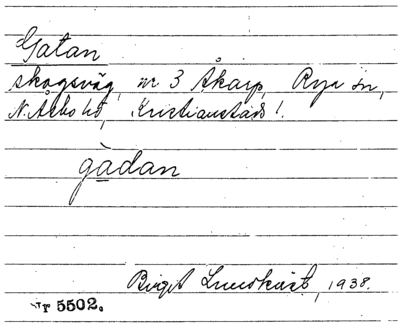 Gatan
skogsväg, nr 3 Åkarp, Rya sn,
N. Åsbo hd, Kristianstads l.
gàdan
Birgit Lundkvist, 1938.
Nr 5502.